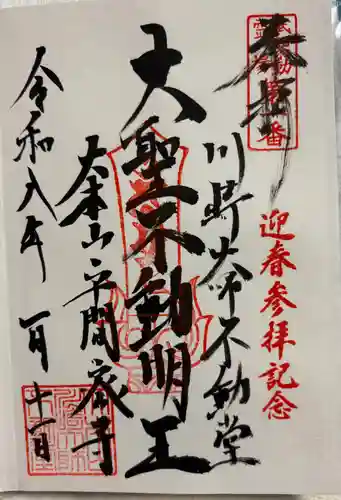 奉拝
迎春参拝記念
川崎大師不動堂
大聖不動明王
大本山平間寺
令和八年一月十一日